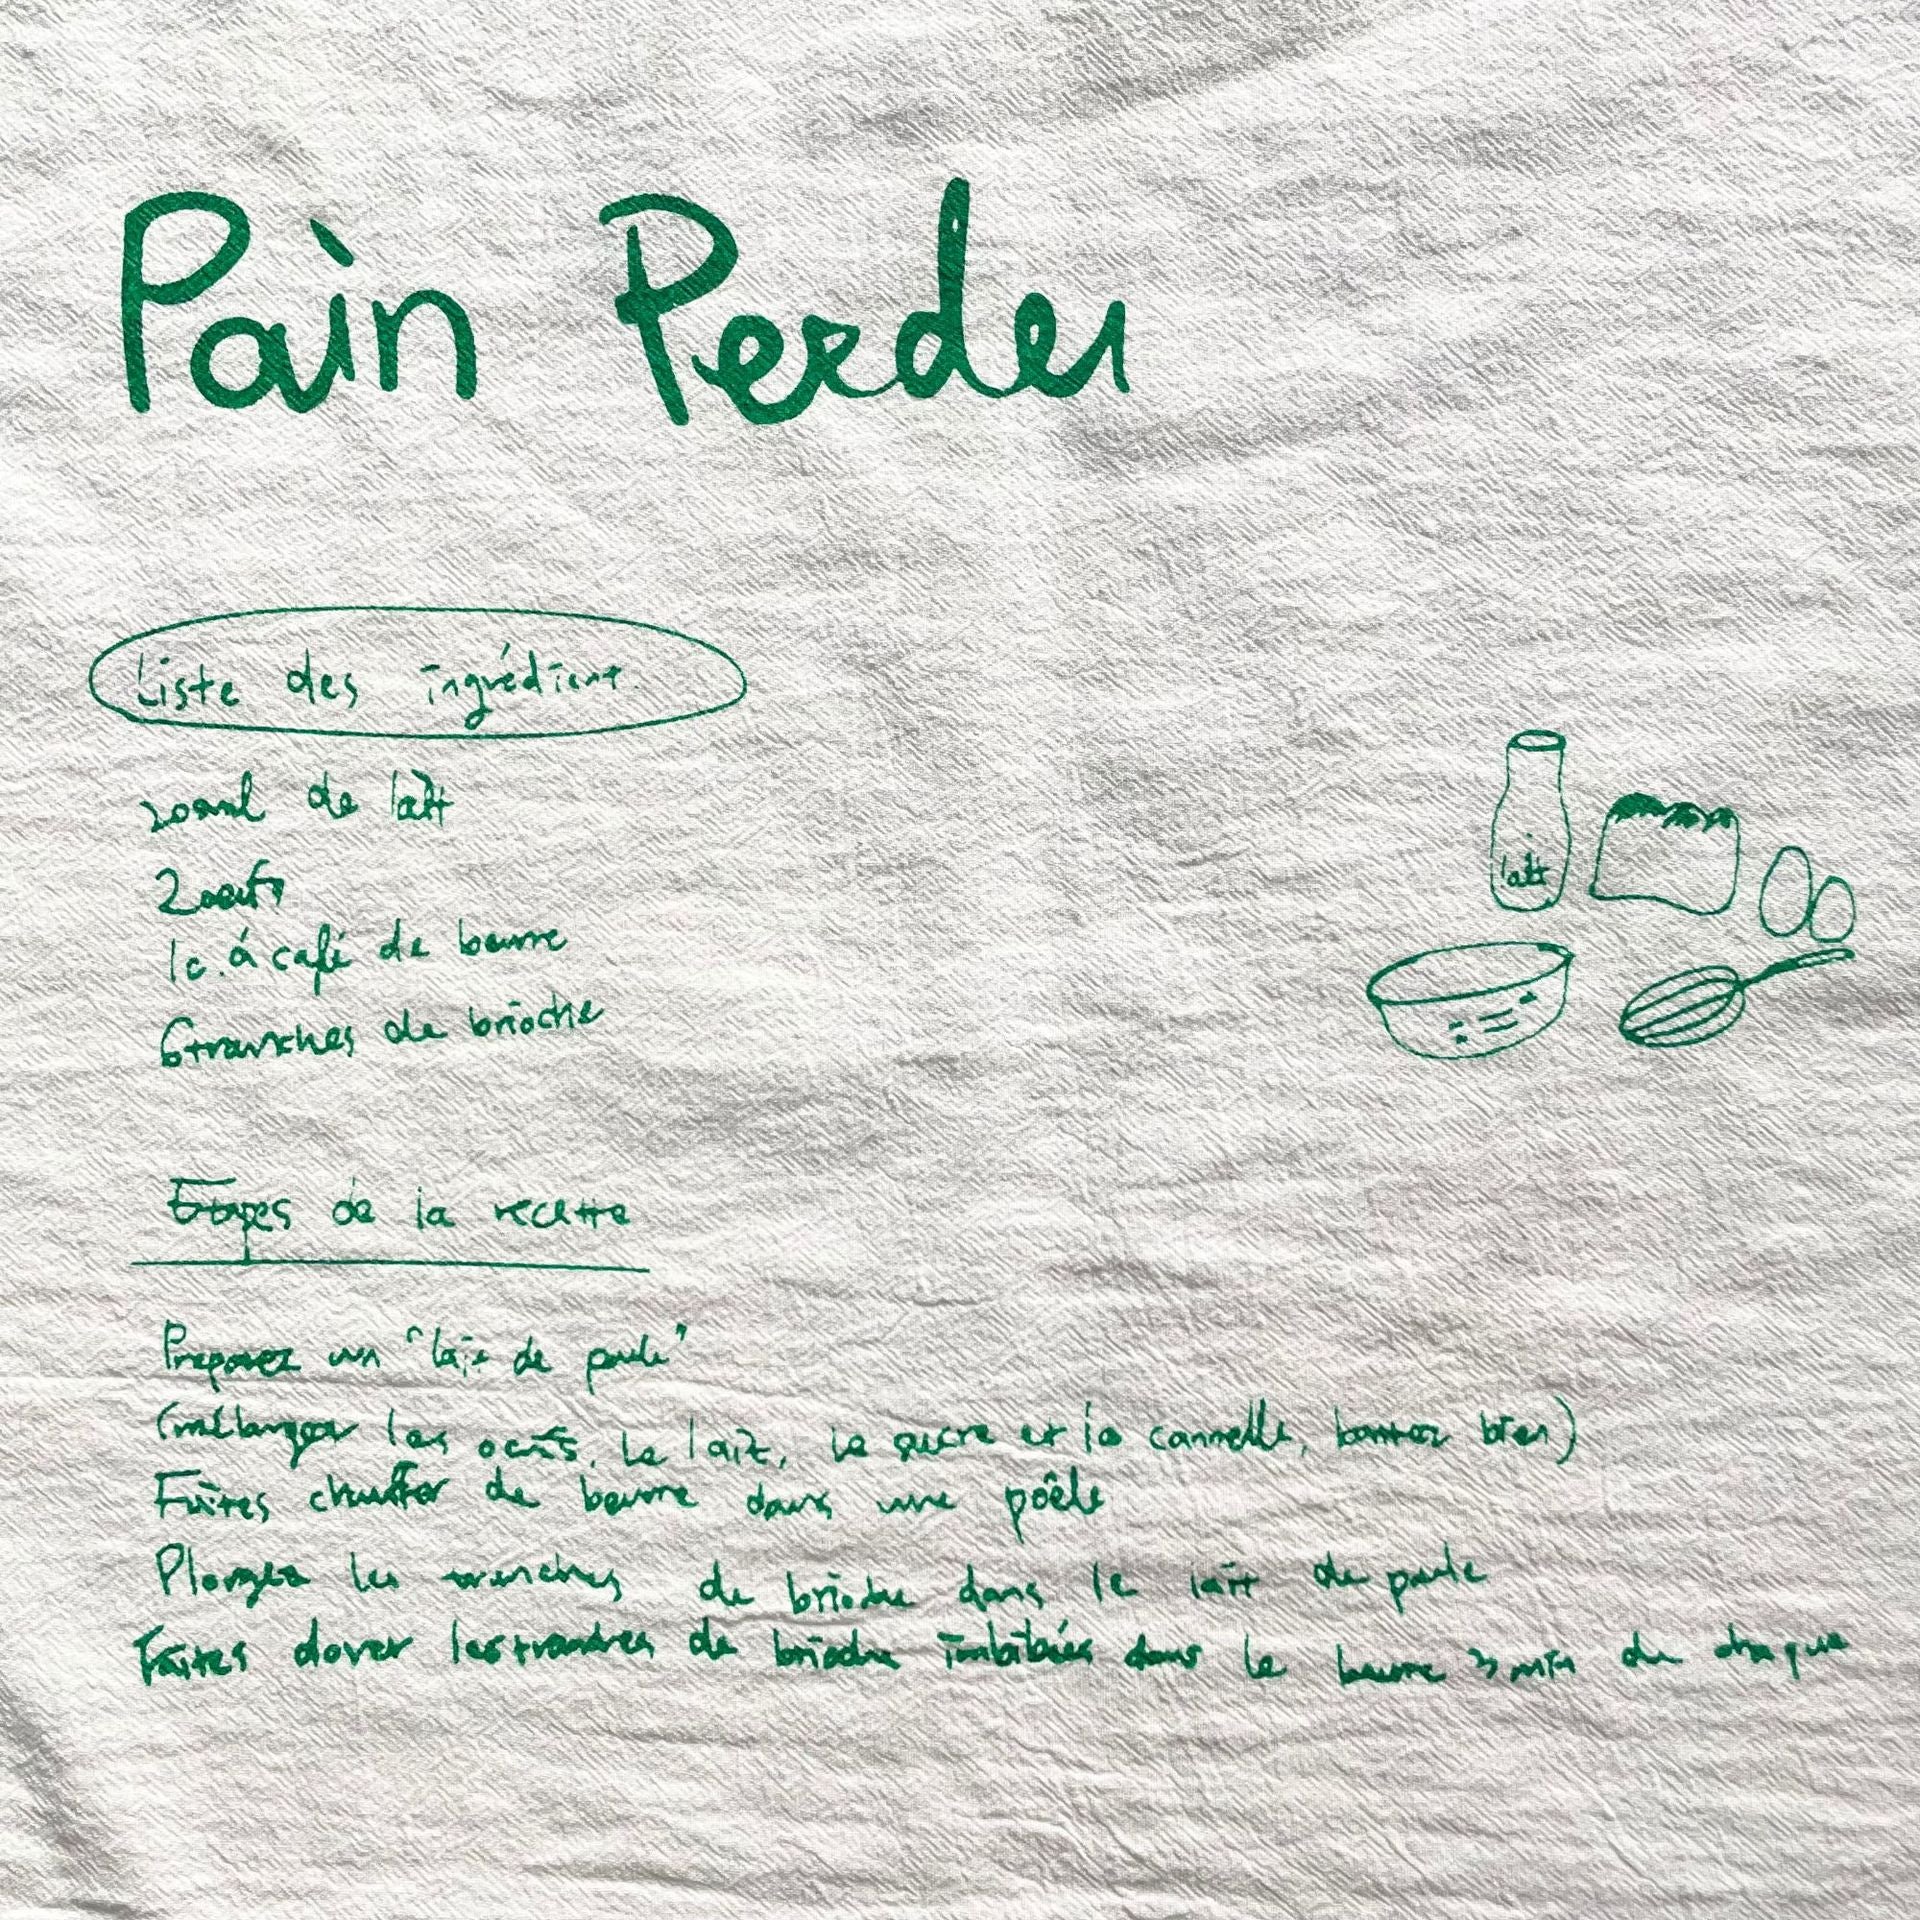 Pain Perdu
Liste des ingrédient.
200ml de lait
2 oeufs
1c. à café de beurre
6 tranches de brioche
lait
Etapes de la recette
Preparez un "lait de poule"
(mélanger les oeufs, le lait, le sucre et la cannelle, battez bien)
Faites chauffer de beurre dans une poêle
Plongez les tranches de brioche dans le lait de poule
Faites dorer les tranches de brioche imbibées dans le beurre 3 min du chaque